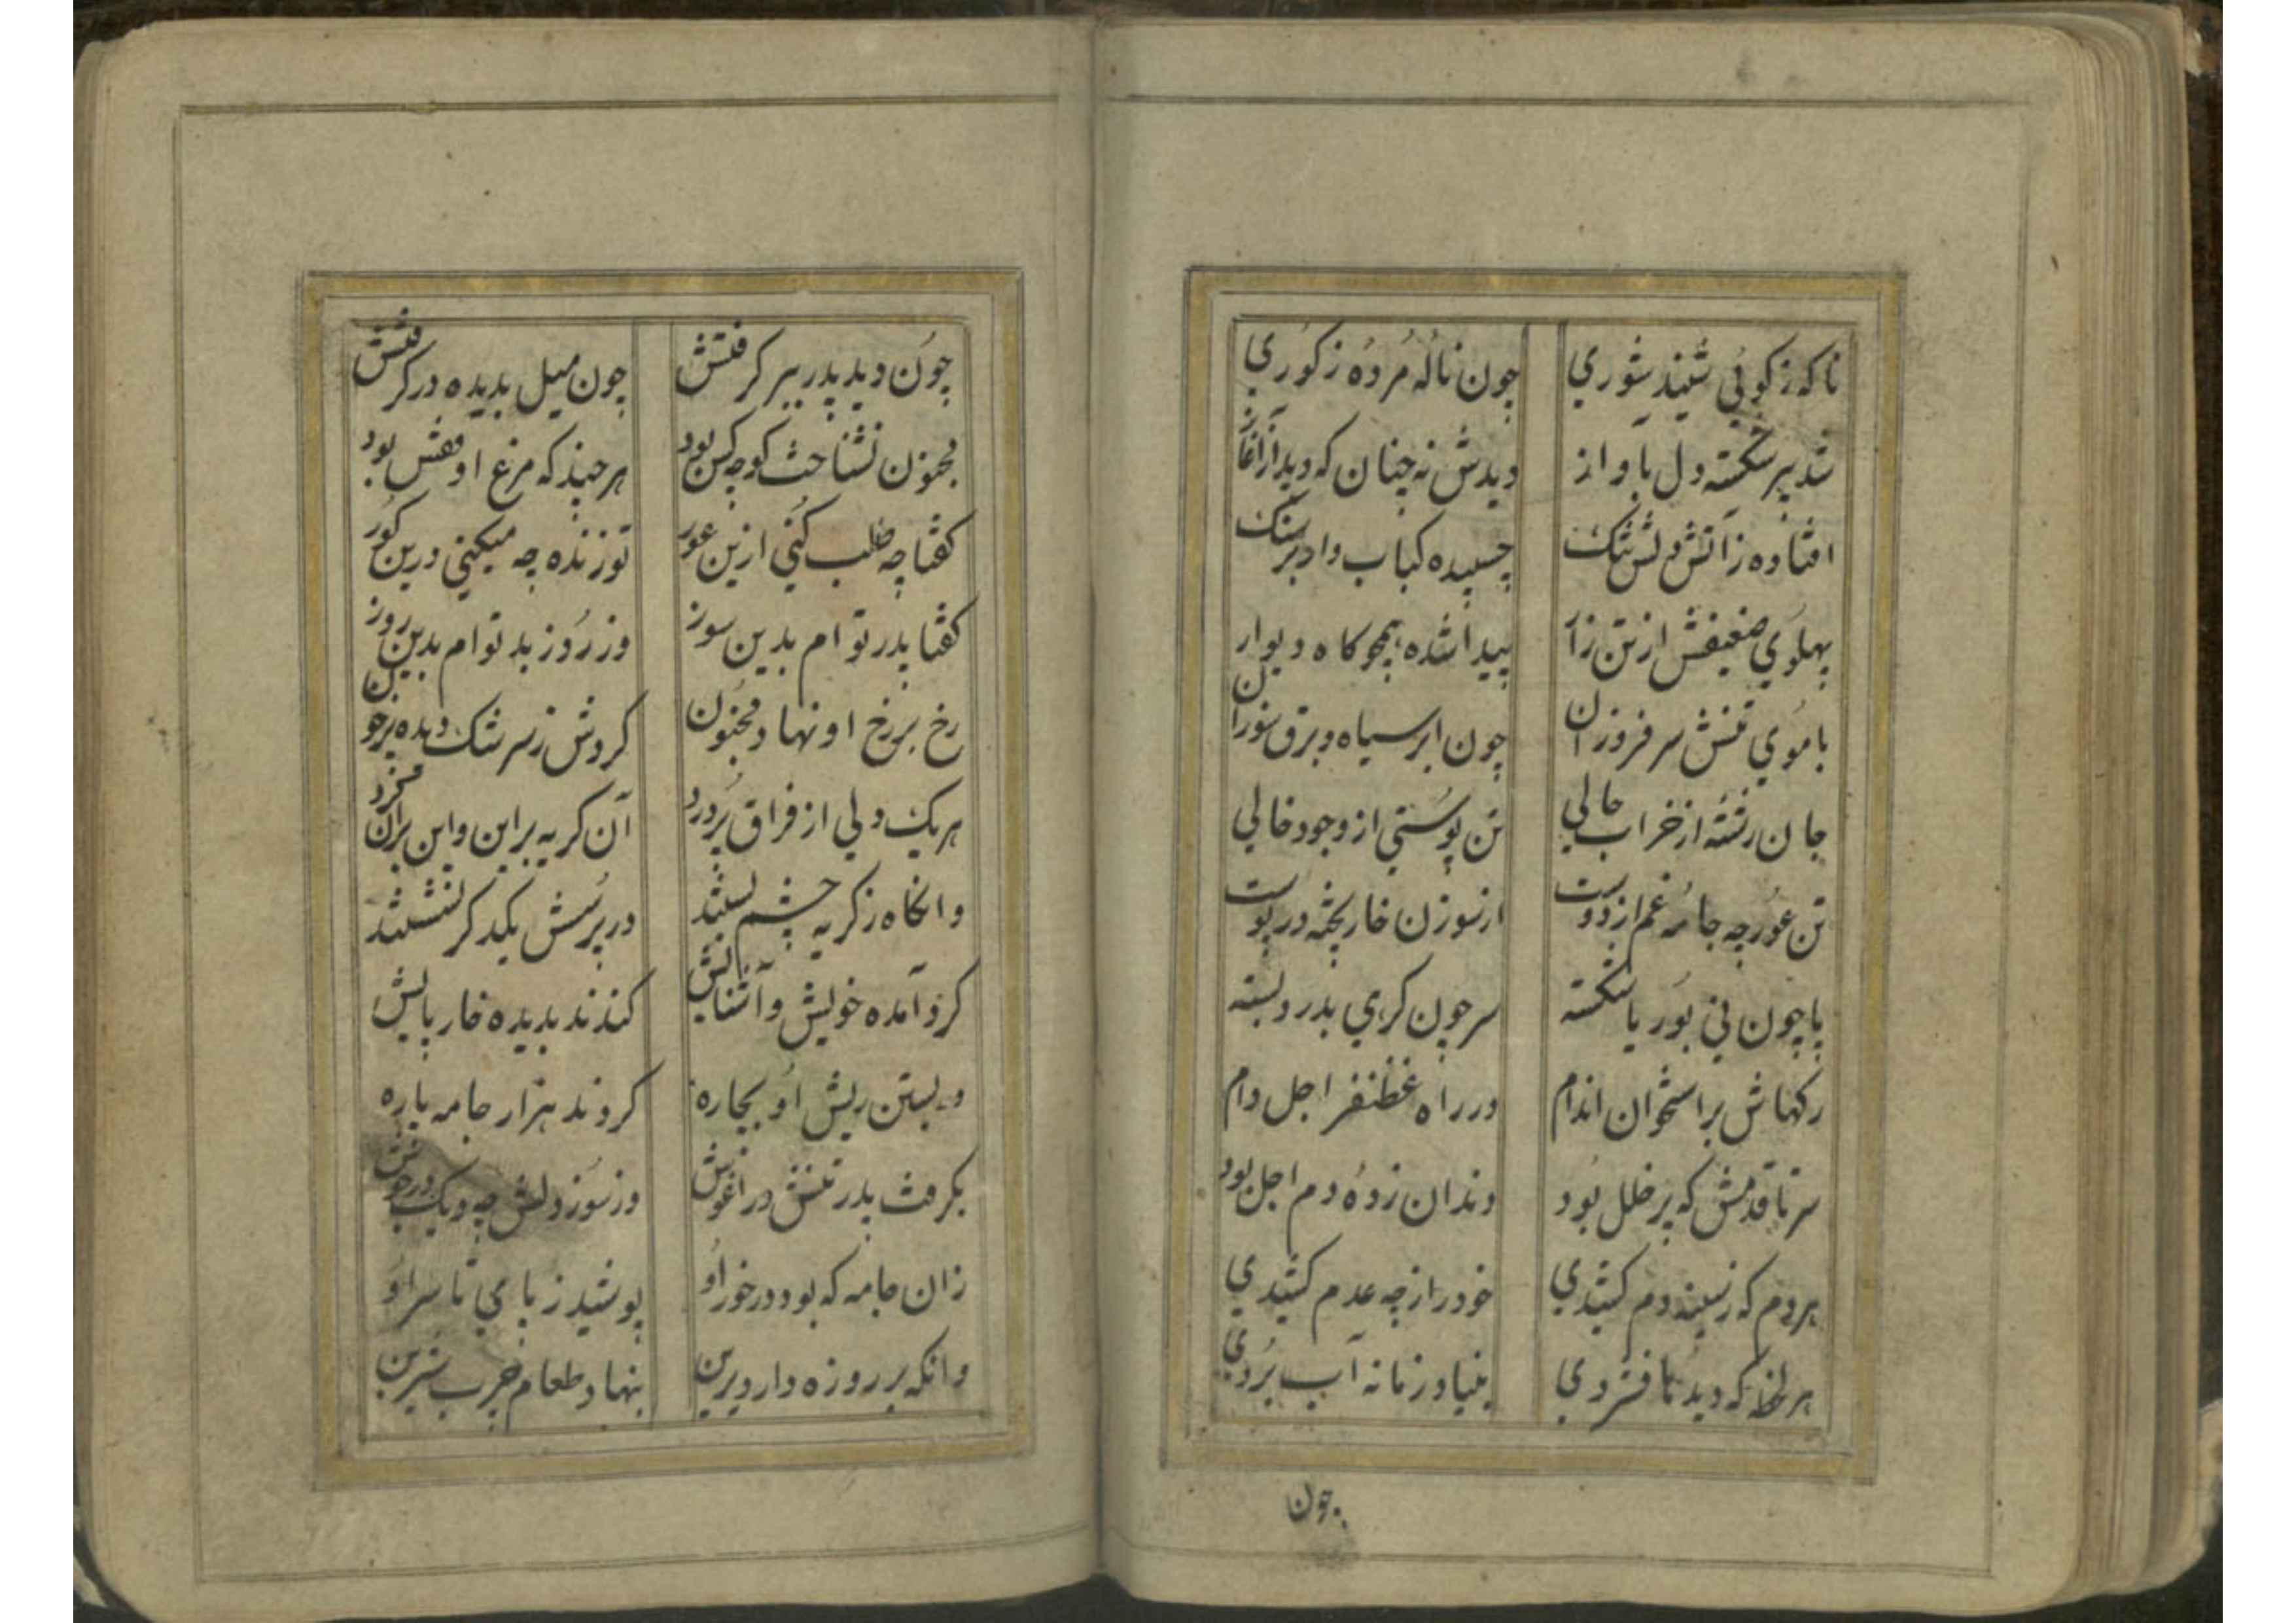 ناکه ز کوئی شنید شوری چون ناله مرده ز کوری
شد پیر شکسته دل بآواز دیدش نه چنان که دید از آغاز
افتاده ز آتش دلش تنک چسپیده کباب وار بر سنک
پهلوی ضعیفش از تن زار پیدا شده همچو کاه دیوار
با موی تنش سر فروزان چون ابر سیاه و برق سوزان
جان رفته از خراب حالی تن پوستی از وجود خالی
تن عور چه جامه غم از دوست از سوزن خار بخیه در پوست
پا چون نی بوریا شکسته سر چون کرهی بدرد بسته
رکهاش بر استخوان اندام در راه غظنفر اجل دام
سر تا قدمش که پر خلل بود دندان زده دم اجل بود
هر دم که ز سینه دم کشیدی خود را ز چه عدم کشیدی
هر لحظه که دیدها فشردی بنیاد زمانه آب بردی
چون
چون دید پدر ببر کرفتش چون میل بدیده در کرفتش
مجنون نشناخت کو چه کس بود هر چند که مرغ او قفس بود
کفتا چه طلب کنی ازین عور تو زنده چه میکنی درین کور
کفتا پدر توام بدین سوز وز روز بد توام بدین روز
رخ بر رخ او نهاد مجنون کردش ز سرشک دیده پر خون
هر یک دلی از فراق پر درد آن کریه بر این و این بر آن کرد
وانکاه ز کریه چشم بستند در پرسش یکدکر نشستند
کرد آمده خویش و آشنایش کندند بدیده خار پایش
در بستن ریش او بیچاره کردند هزار جامه پاره
بکرفت پدر تنش در آغوش وز سوز دلش چو دیک در جوش
زان جامه که بود در خور او پوشید ز پای تا سر او
وانکه بر روزه دار دیرین بنهاد طعام چرب شیرین